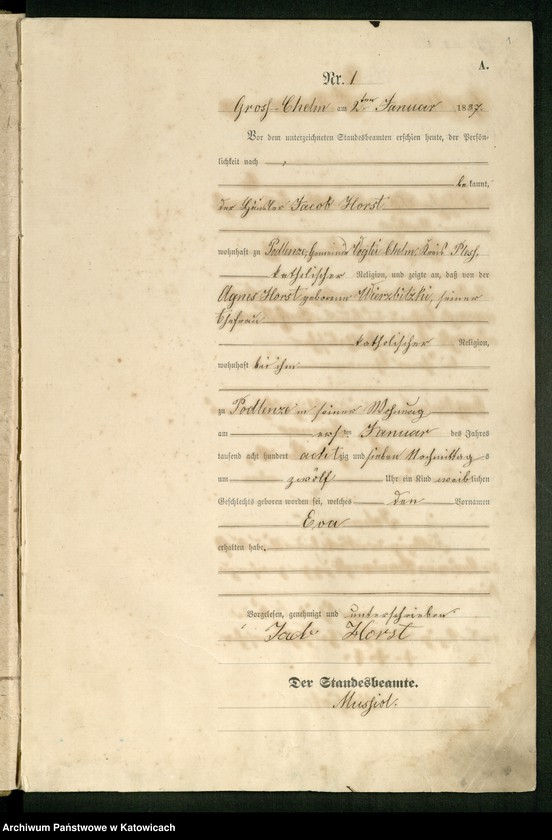 A.
1
Nr. 1
Gross-Chelm am 2ten Januar 1887.
Vor dem unterzeichneten Standesbeamten erschien heute, der Persön-
lichkeit nach
bekannt,
der Häusler Jacob Horst
wohnhaft zu Podlenze, Gemeinde Vogtei Chelm, Kreis Pless,
katholischer Religion, und zeigte an, daß von der
Agnes Horst geborenen Wierzbitzki, seiner
Ehefrau
katholischer Religion,
wohnhaft bei ihm
zu Podlenze in seiner Wohnung
am ersten Januar des Jahres
tausend acht hundert achtzig und sieben Nachmittags
um zwölf Uhr ein Kind weiblichen
Geschlechts geboren worden sei, welches den Vornamen
Eva
erhalten habe.
Vorgelesen, genehmigt und unterschrieben
Jacob Horst
Der Standesbeamte.
Mussiol.
Archiwum Państwowe w Katowicach